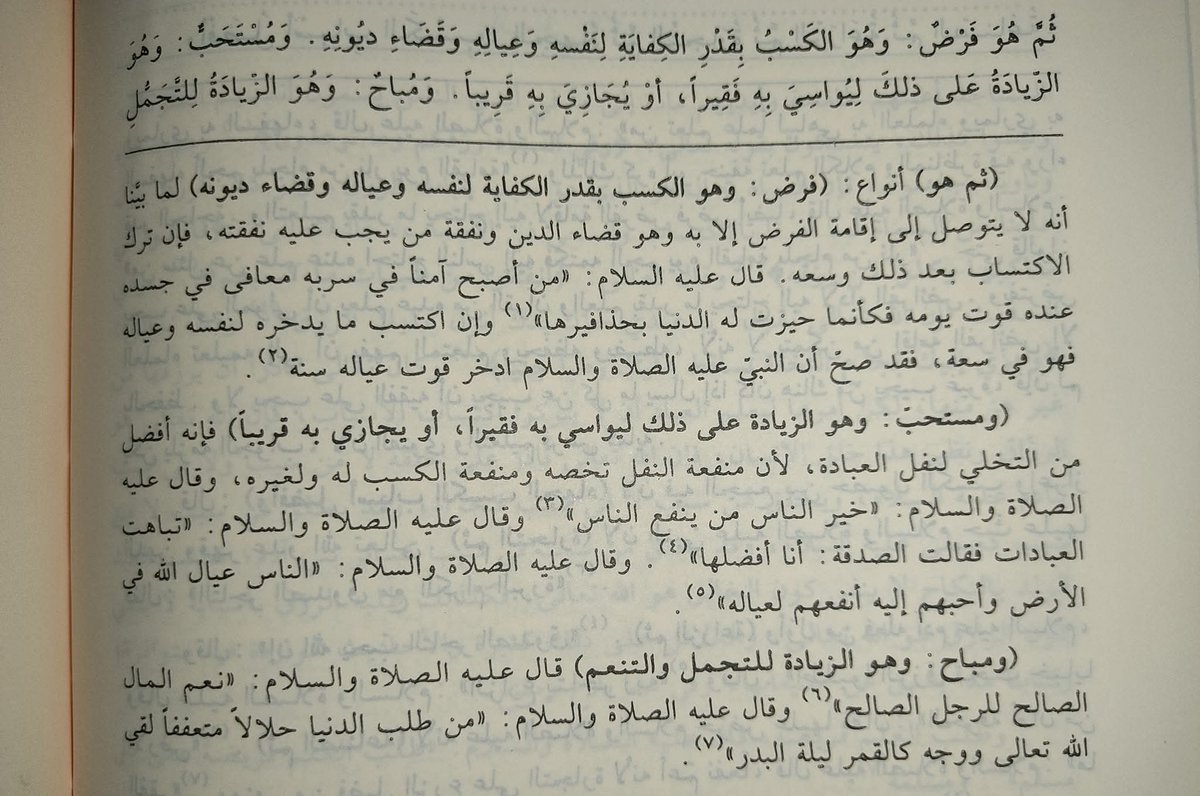 ثُمَّ هُوَ فَرْضٌ: وَهُوَ الكَسْبُ بِقَدْرِ الكِفايَةِ لِنَفْسِهِ وَعِيالِهِ وَقَضَاءِ ديُونِهِ. وَمُسْتَحَبٌّ: وَهُوَ
الزِّيادَةُ عَلى ذلكَ لِيُواسِيَ بِهِ فَقِيراً، أوْ يُجَازِيَ بِهِ قَرِيباً. وَمُباحٌ: وَهُوَ الزِّيادَةُ لِلتَّجَمُّلِ
(ثم هو) أنواع: (فرض: وهو الكسب بقدر الكفاية لنفسه وعياله وقضاء ديونه) لما بيَّنا
أنه لا يتوصل إلى إقامة الفرض إلا به وهو قضاء الدين ونفقة من يجب عليه نفقته، فإن ترك
الاكتساب بعد ذلك وسعه. قال عليه السلام: «من أصبح آمناً في سربه معافى في جسده
عنده قوت يومه فكأنما حيزت له الدنيا بحذافيرها»(١) وإن اكتسب ما يدخره لنفسه وعياله
فهو في سعة، فقد صحّ أن النبيّ عليه الصلاة والسلام ادخر قوت عياله سنة(٢).
(ومستحبّ: وهو الزيادة على ذلك ليواسي به فقيراً، أو يجازي به قريباً) فإنه أفضل
من التخلي لنفل العبادة، لأن منفعة النفل تخصه ومنفعة الكسب له ولغيره، وقال عليه
الصلاة والسلام: «خير الناس من ينفع الناس»(٣) وقال عليه الصلاة والسلام: «تباهت
العبادات فقالت الصدقة: أنا أفضلها»(٤). وقال عليه الصلاة والسلام: «الناس عيال الله في
الأرض وأحبهم إليه أنفعهم لعياله»(٥).
(ومباح: وهو الزيادة للتجمل والتنعم) قال عليه الصلاة والسلام: «نعم المال
الصالح للرجل الصالح»(٦) وقال عليه الصلاة والسلام: «من طلب الدنيا حلالاً متعففاً لقي
الله تعالى ووجه كالقمر ليلة البدر»(٧).